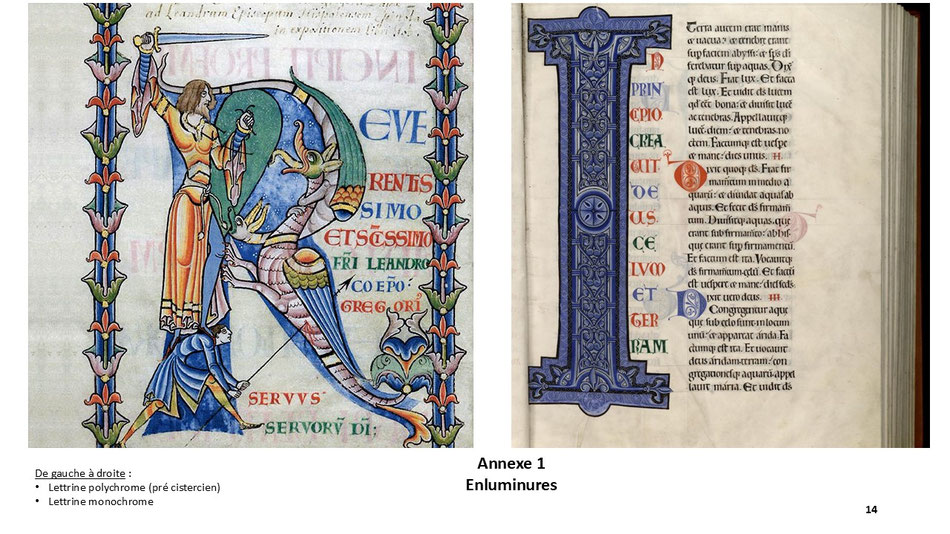 ad Leandrum Episcopum
in expositionem
EVE
RENTIS
SIMO
ET SCISSIMO
FRI LEANDRO
COEPO:
GREGORI
SERVVS
SERVORV DI;
IN
PRIN
CIPIO
CREA
VIT
DE
US
CE
LUM
ET
TER
RAM
Terra autem erat inanis
et uacua: et tenebre erant
sup faciem abyssi: et sps di
ferebatur sup aquas. Dixitq
qz deus. Fiat lux. Et facta
est lux. Et uidit ds lucem
qd eet bona: et diuisit lucē
ac tenebras. Appellauitqz
lucē diem: et tenebras no
ctem. Factumqz est uespe
et mane: dies unus. II.
Dixit quoqz ds. Fiat fir
mamētum in medio a
quarū: et diuidat aquas ab
aquis. Et fecit ds firmam
tum. Diuisitqz aquas. que
erant sub firmamēto: ab his
que erant sup firmamentū.
Et factum est ita. Vocauitqz
ds firmamentum celū. Et factū
est uespere et mane: dies scds.
Dixit uero deus. III
Congregentur aque
que sub celo sunt in locum
unū: et appareat arida. Fa
ctumqz est ita. Et uocauit
deus aridam terram: con
gregationesqz aquarū appel
lauit maria. Et uidit ds
Annexe 1
Enluminures
De gauche à droite :
• Lettrine polychrome (pré cistercien)
• Lettrine monochrome
14